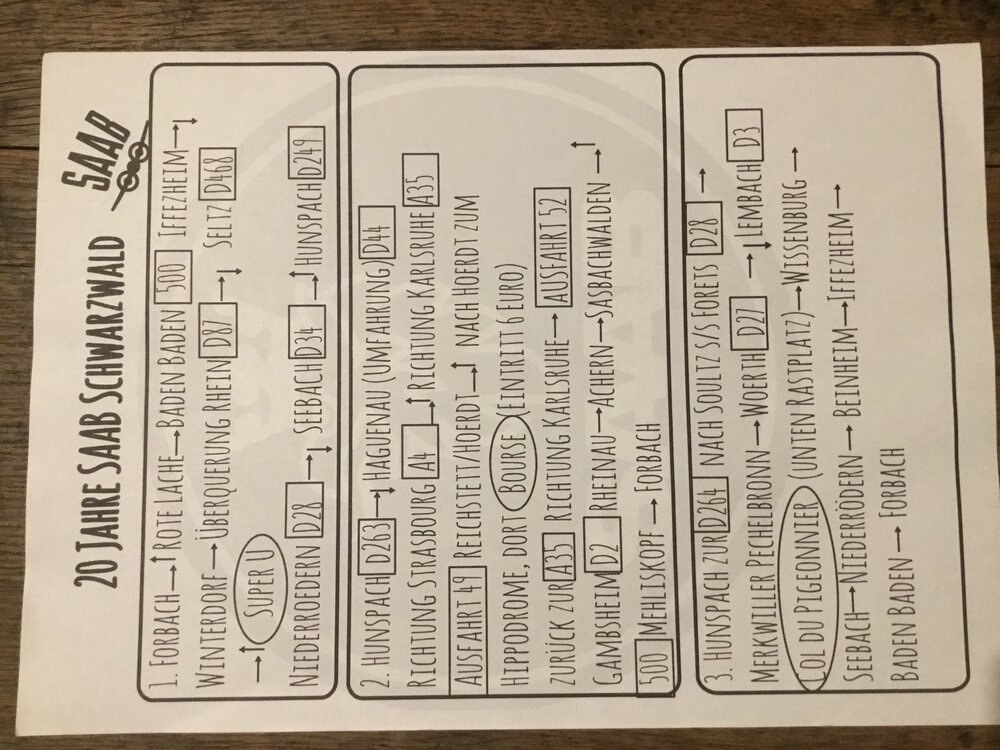 20 JAHRE SAAB SCHWARZWALD SAAB
1. FORBACH → ROTE LACHE → BADEN BADEN 500 IFFEZHEIM →
WINTERDORF → ÜBERQUERUNG RHEIN D87 → SELTZ D468
→ SUPER U
NIEDERROEDERN D28 → SEEBACH D34 → HUNSPACH D249
2. HUNSPACH D263 → HAGUENAU (UMFAHRUNG) D44
RICHTUNG STRASBOURG A4 → RICHTUNG KARLSRUHE A35
AUSFAHRT 49 REICHSTETT/HOERDT → NACH HOERDT ZUM
HIPPODROME, DORT BOURSE (EINTRITT 6 EURO)
ZURÜCK ZUR A35 RICHTUNG KARLSRUHE → AUSFAHRT 52
GAMBSHEIM D2 RHEINAU → ACHERN → SASBACHWALDEN →
500 MEHLISKOPF → FORBACH
3. HUNSPACH ZUR D264 NACH SOULTZ S/S FORETS D28 →
MERKWILLER PECHELBRONN → WOERTH D27 → LEMBACH D3
COL DU PIGEONNIER (UNTEN RASTPLATZ) → WISSENBURG →
SEEBACH → NIEDERRÖDERN → BEINHEIM → IFFEZHEIM →
BADEN BADEN → FORBACH